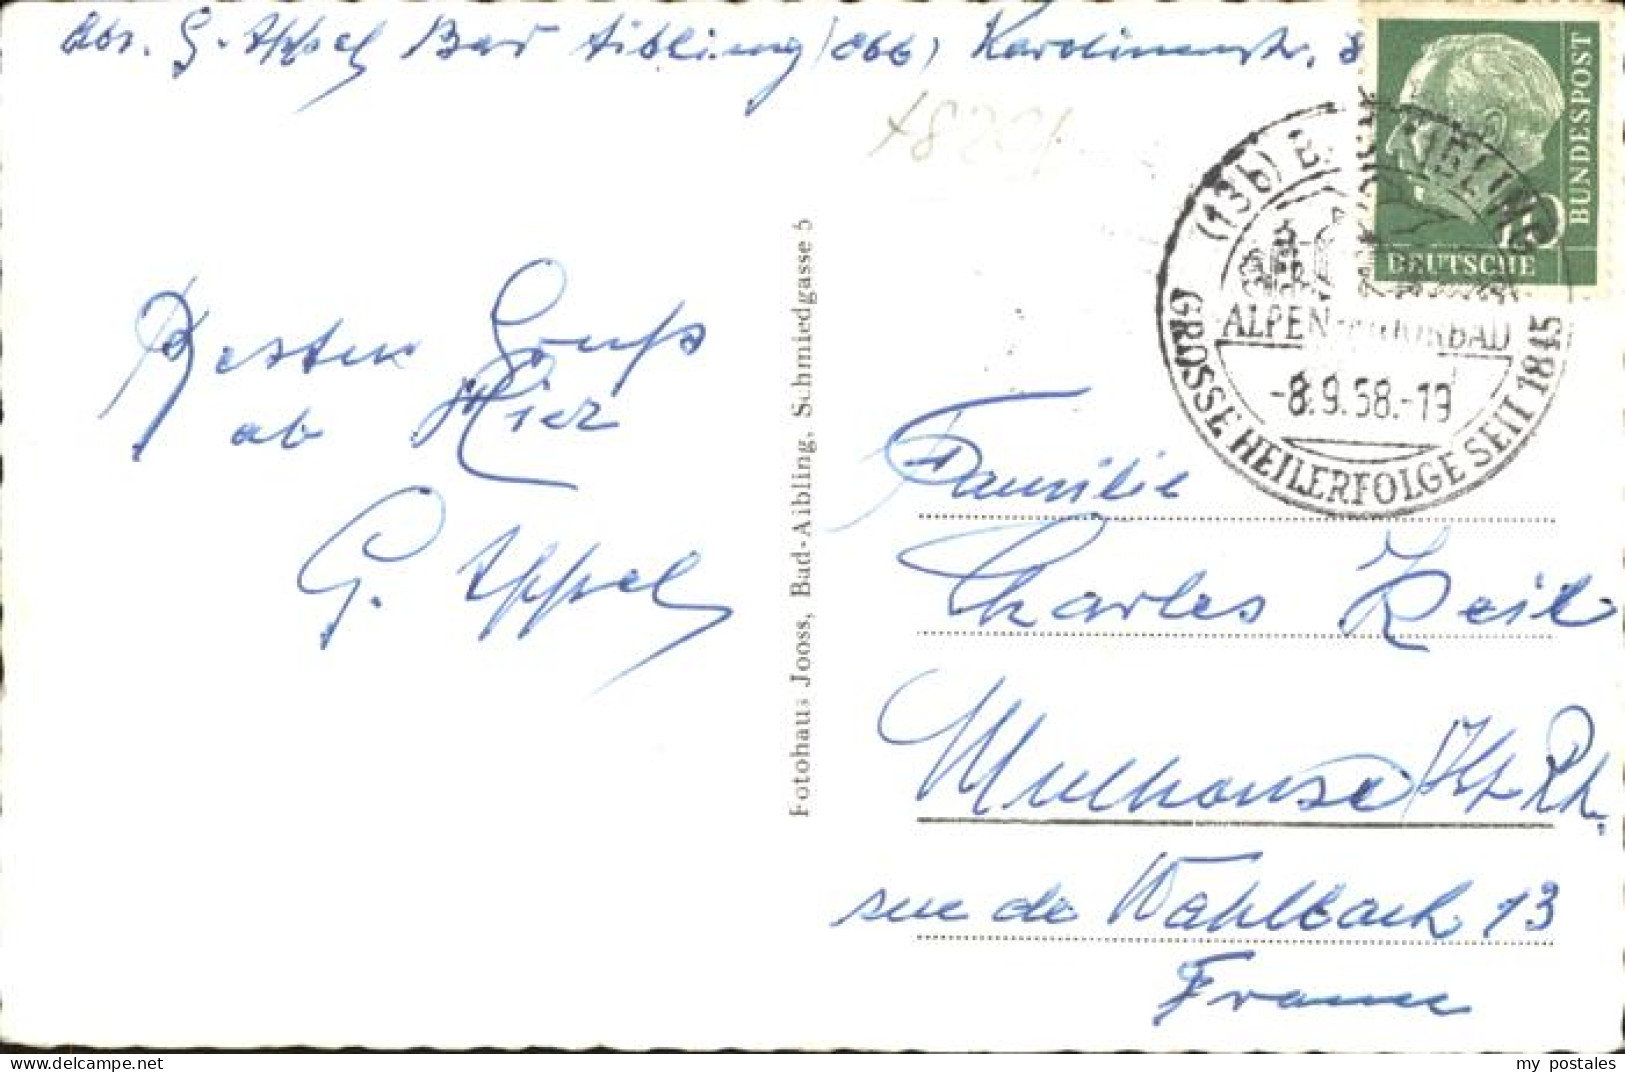 Abs. G. Appel Bad Aibling (Obb) Karolinenstr. 8
BUNDESPOST
DEUTSCHE
(13b) B AIBLING
ALPEN-MOORBAD
-8.9.58.-19
GROSSE HEILERFOLGE SEIT 1845
Besten Gruß
ab Hier
G. Appel
Fotohaus Jooss, Bad-Aibling, Schmiedgasse 5
Familie
Charles Keil
Mulhouse / Ht Rh.
rue de Wahlbach 13
France
delcampe.net
my_postales